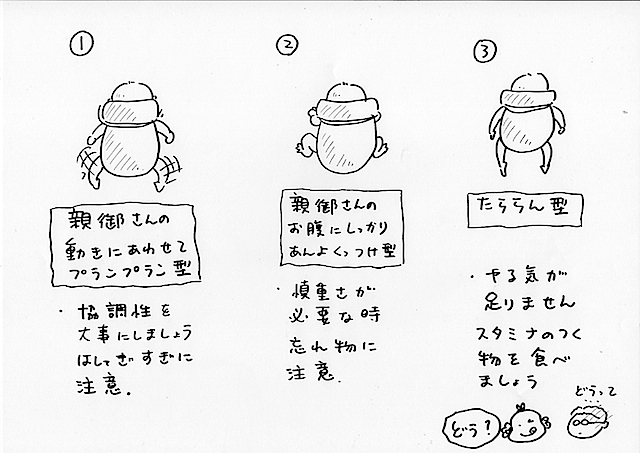 ①
親御さんの
動きにあわせて
プランプラン型
・協調性を
大事にしましょう
はしゃぎすぎに
注意.
②
親御さんの
お腹にしっかり
あんよくっつけ型
・慎重さが
必要な時
忘れ物に
注意.
③
たららん型
・ヤる気が
足りません
スタミナのつく
物を食べ
ましょう
どう?
どうって